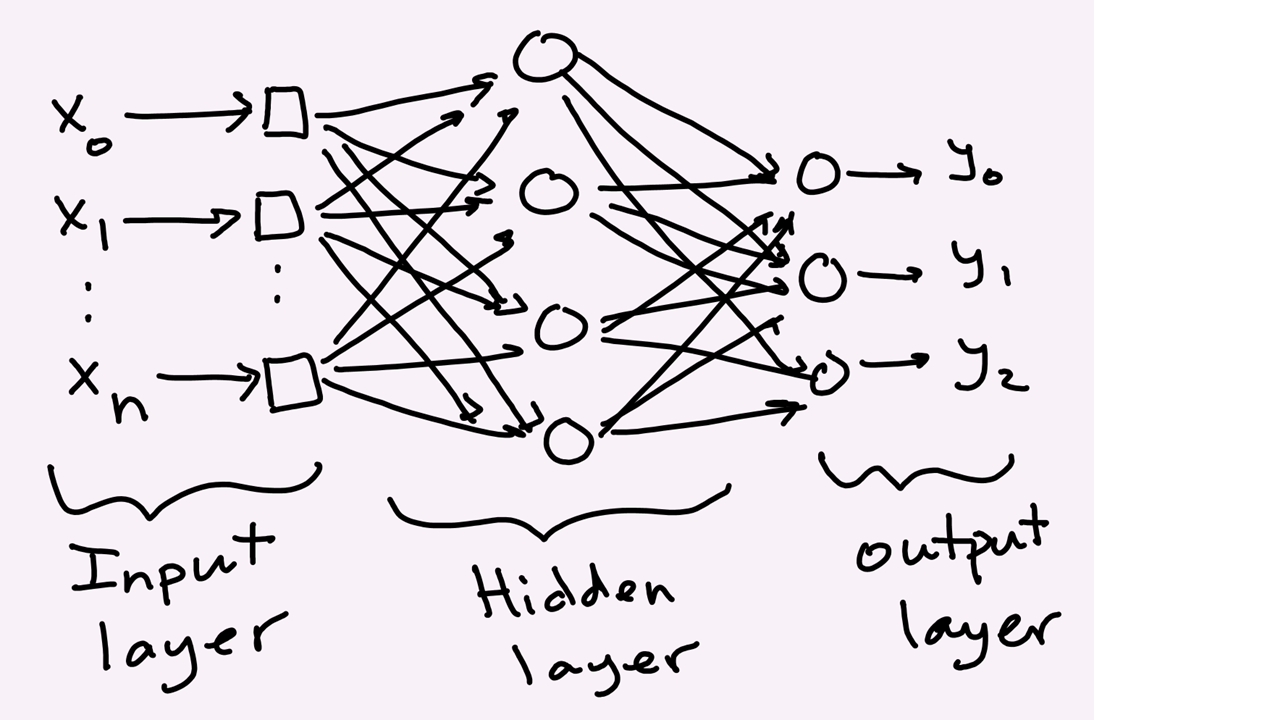 x₀
x₁
⋮
xₙ
y₀
y₁
y₂
Input
layer
Hidden
layer
output
layer